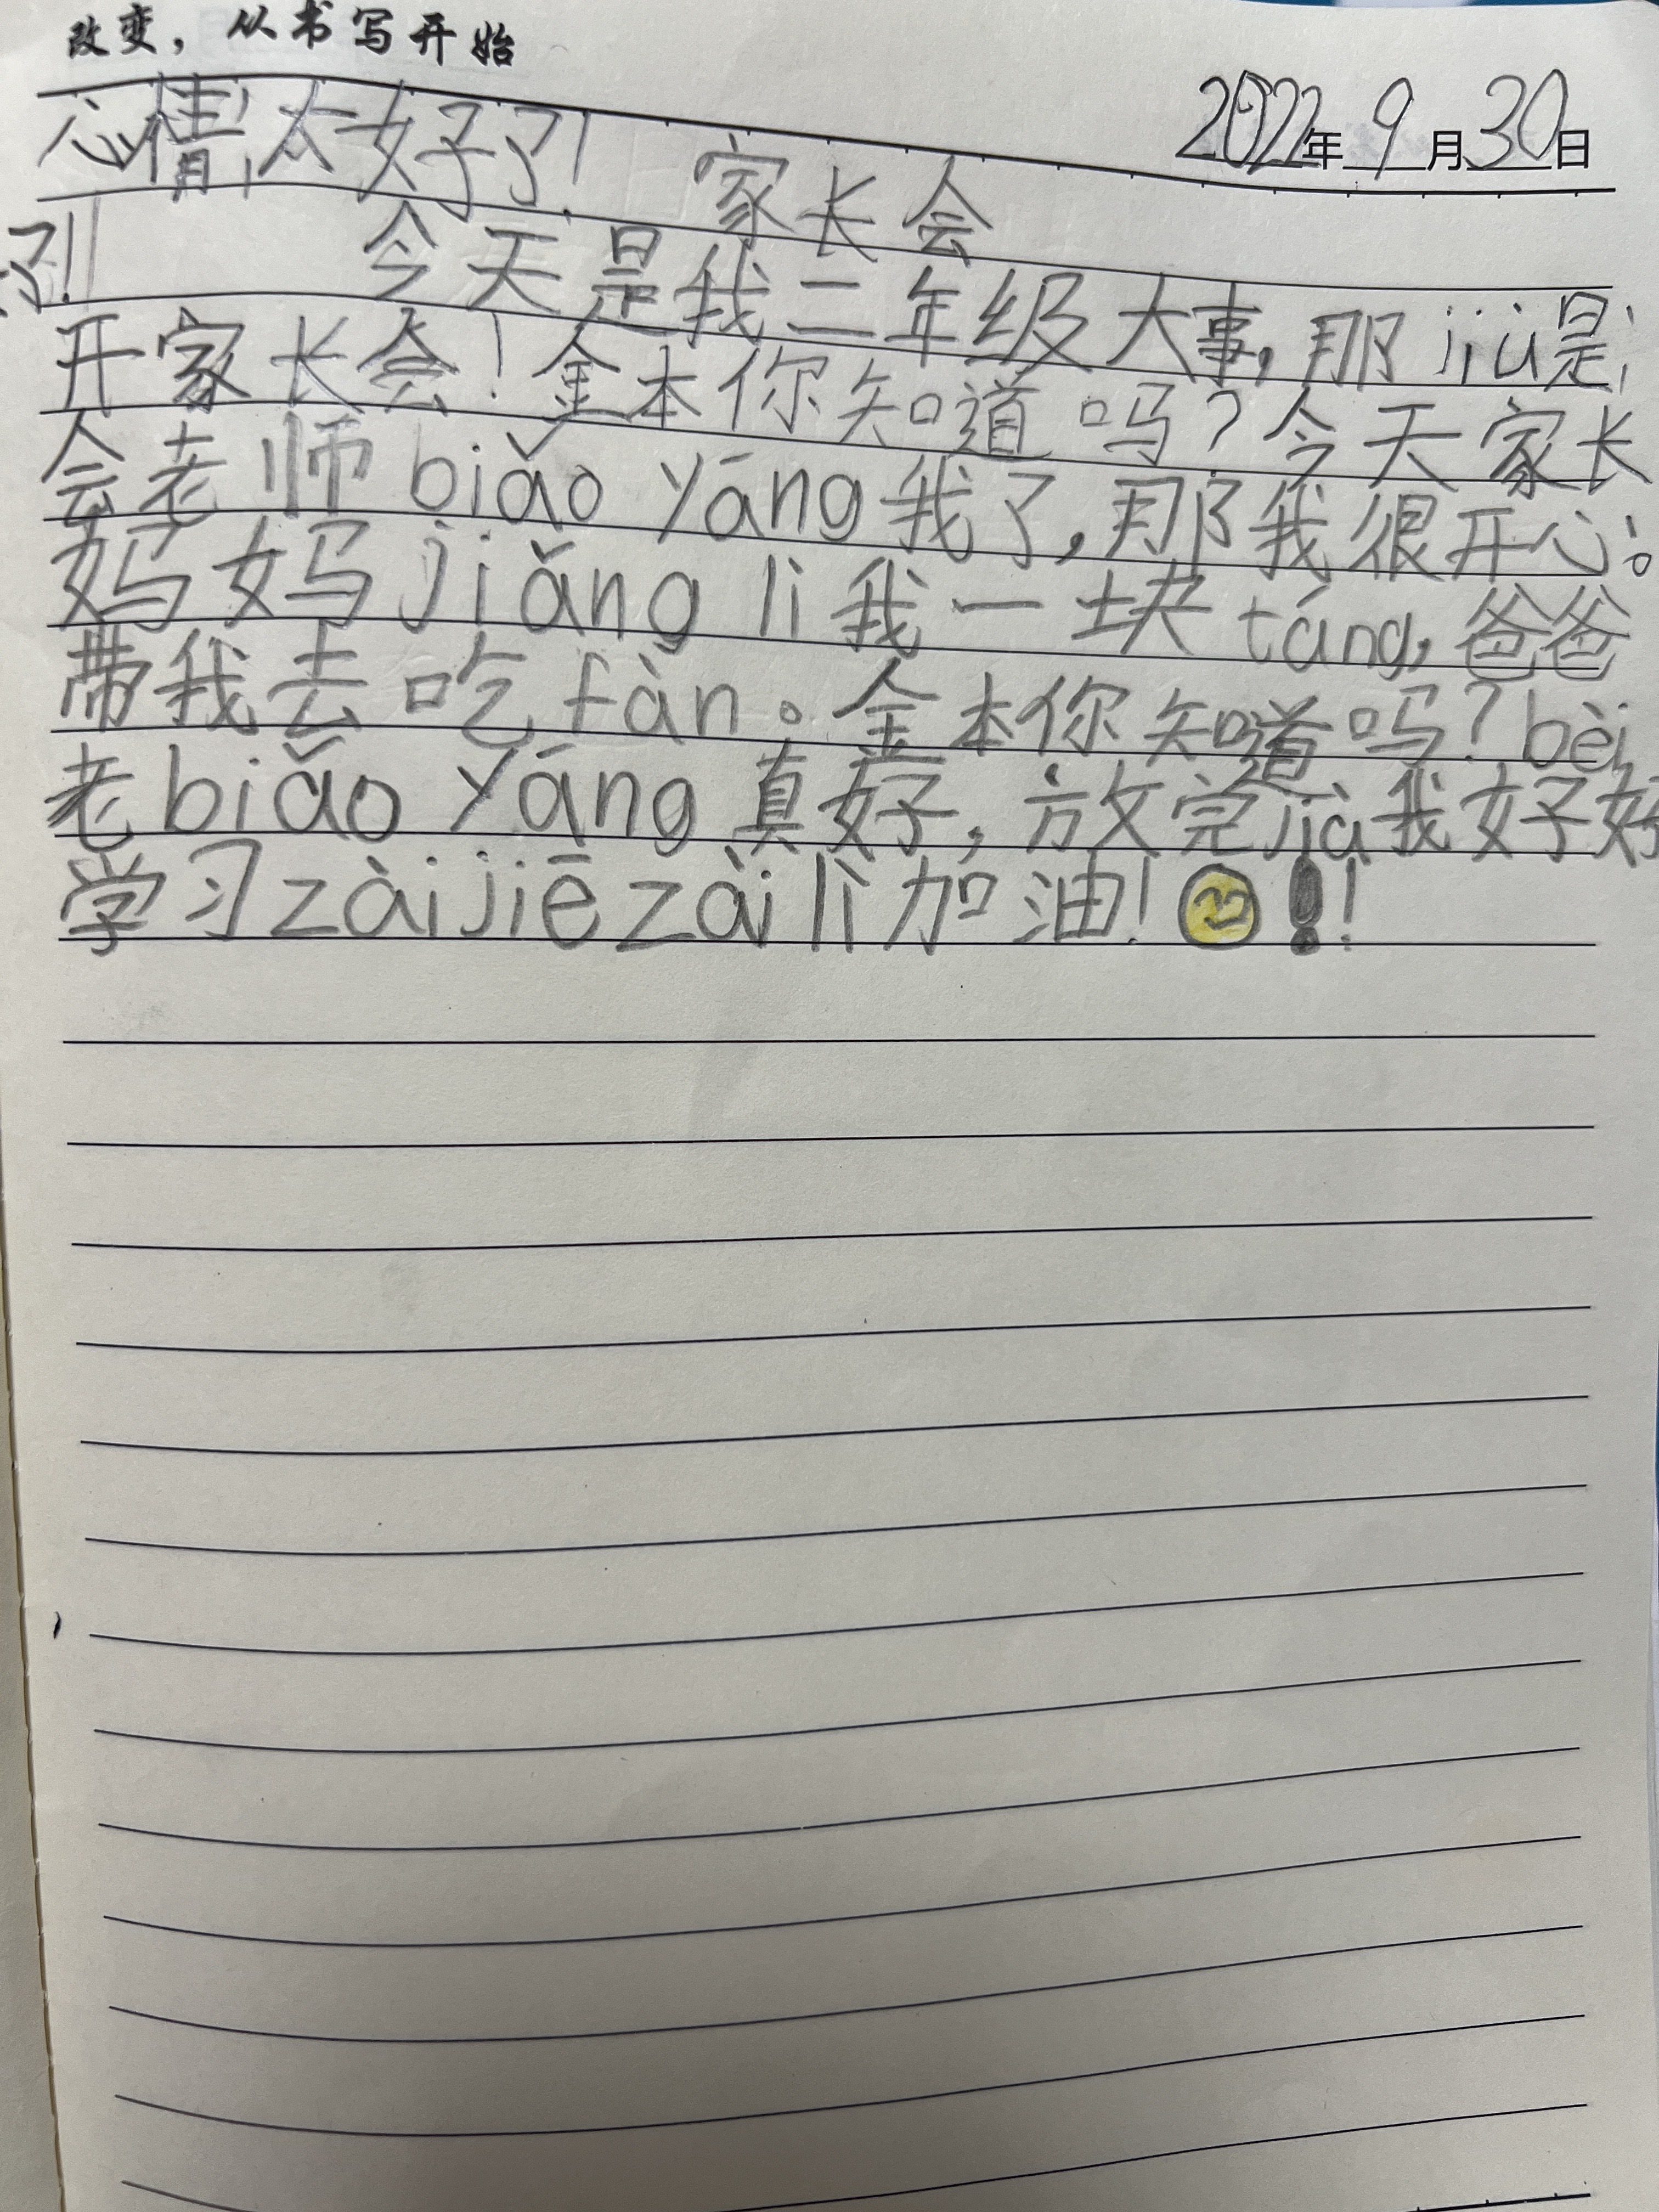 改变，从书写开始
2022年9月30日
心情，太好了！ 家长会
了！ 今天是我二年级大事，那jiù是，
开家长会！金本你知道吗？今天家长
会老师biǎo yáng我了，那我很开心。
妈妈jiǎng li我一块táng，爸爸
带我去吃fàn。金本你知道吗？bèi
老biǎo yáng真好，放完jià我好好
学习zài jiē zài lì加油！！！